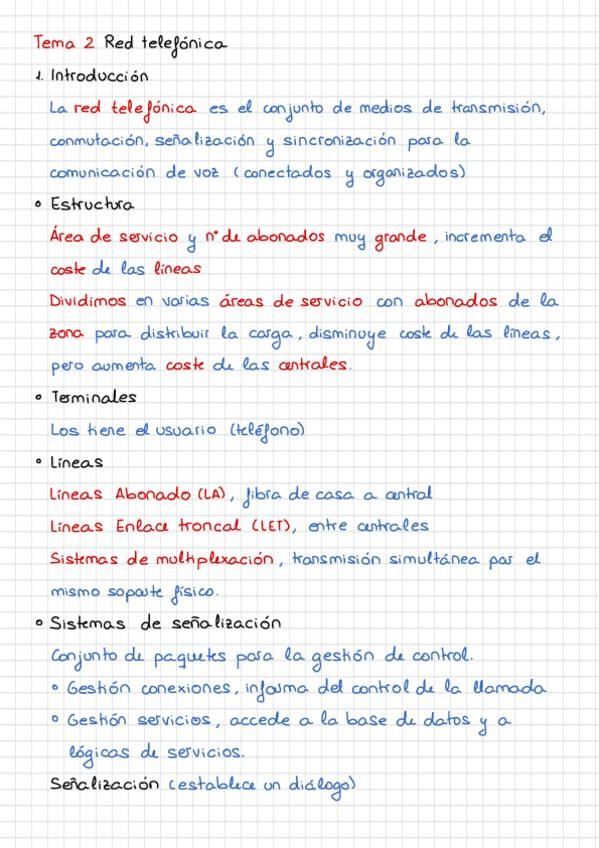 Tema 2 Red telefónica
1. Introducción
La red telefónica es el conjunto de medios de transmisión,
conmutación, señalización y sincronización para la
comunicación de voz (conectados y organizados)
Estructura
Área de servicio y nº de abonados muy grande, incrementa el
coste de las líneas
Dividimos en varias áreas de servicio con abonados de la
zona para distribuir la carga, disminuye coste de las líneas,
pero aumenta coste de las centrales.
Terminales
Los tiene el usuario (teléfono)
Líneas
Líneas Abonado (LA), fibra de casa a central
Líneas Enlace troncal (LET), entre centrales
Sistemas de multiplexación, transmisión simultánea por el
mismo soporte físico.
Sistemas de señalización
Conjunto de paquetes para la gestión de control.
Gestión conexiones, informa del control de la llamada
Gestión servicios, accede a la base de datos y a
lógicas de servicios.
Señalización (establece un diálogo)